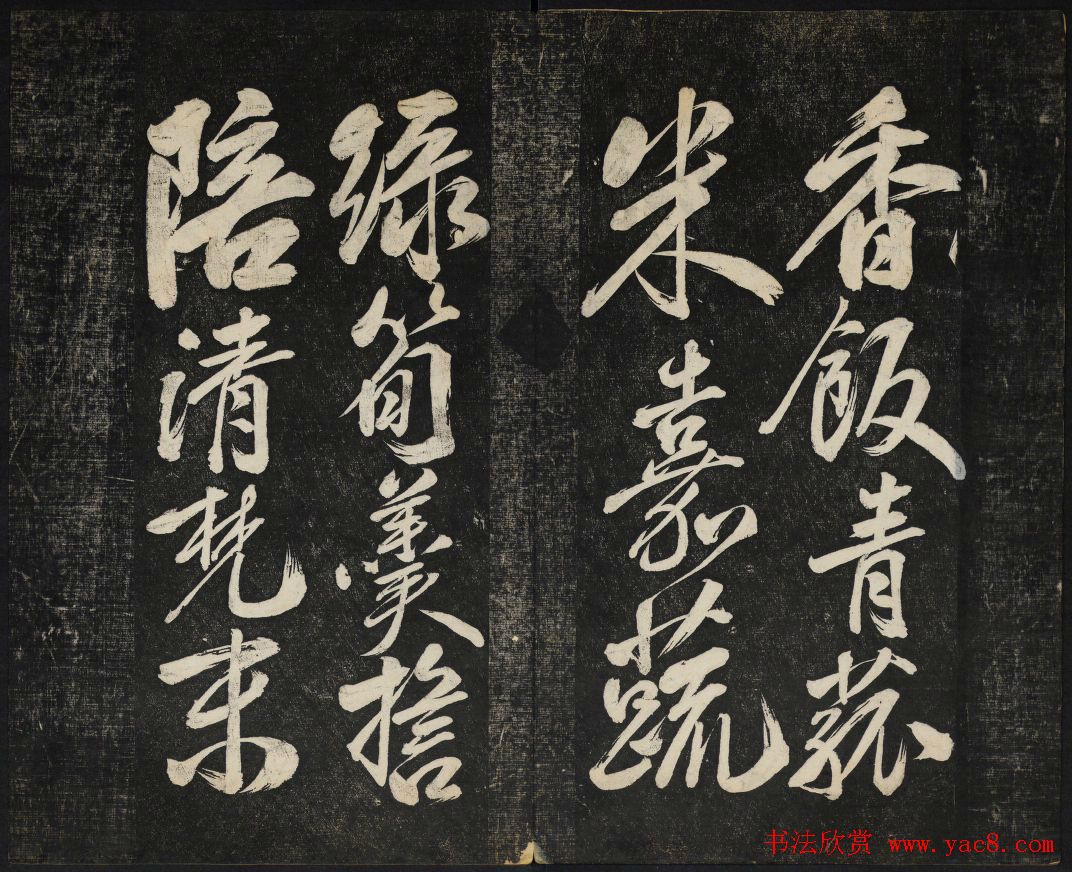 香飯青菰
米嘉蔬
綠筍羹捨
陪清梵末
书法欣赏 www.yac8.com